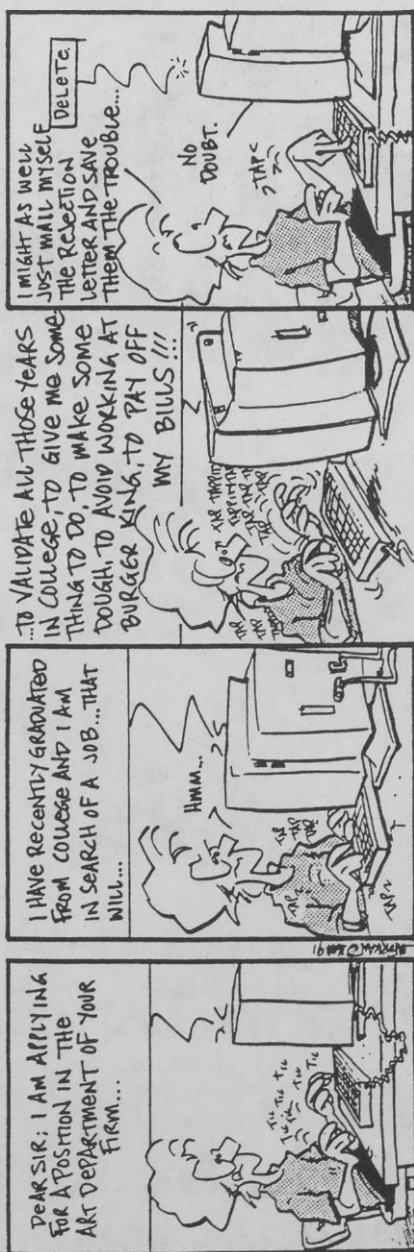 DEAR SIR; I AM APPLYING
FOR A POSITION IN THE
ART DEPARTMENT OF YOUR
FIRM...
TIC TIC TIC
TIC TIC TIC
I HAVE RECENTLY GRADUATED
FROM COLLEGE AND I AM
IN SEARCH OF A JOB...THAT
WILL...
HMM...
TAP
TAP
TAP
TAP
TAP
...TO VALIDATE ALL THOSE YEARS
IN COLLEGE, TO GIVE ME SOME-
THING TO DO, TO MAKE SOME
DOUGH, TO AVOID WORKING AT
BURGER KING, TO PAY OFF
MY BILLS!!!
TAP
TAP
TAP
TAP
TAP
I MIGHT AS WELL
JUST MAIL MYSELF
THE REJECTION
LETTER AND SAVE
THEM THE TROUBLE...
DELETE.
NO
DOUBT.
TAP